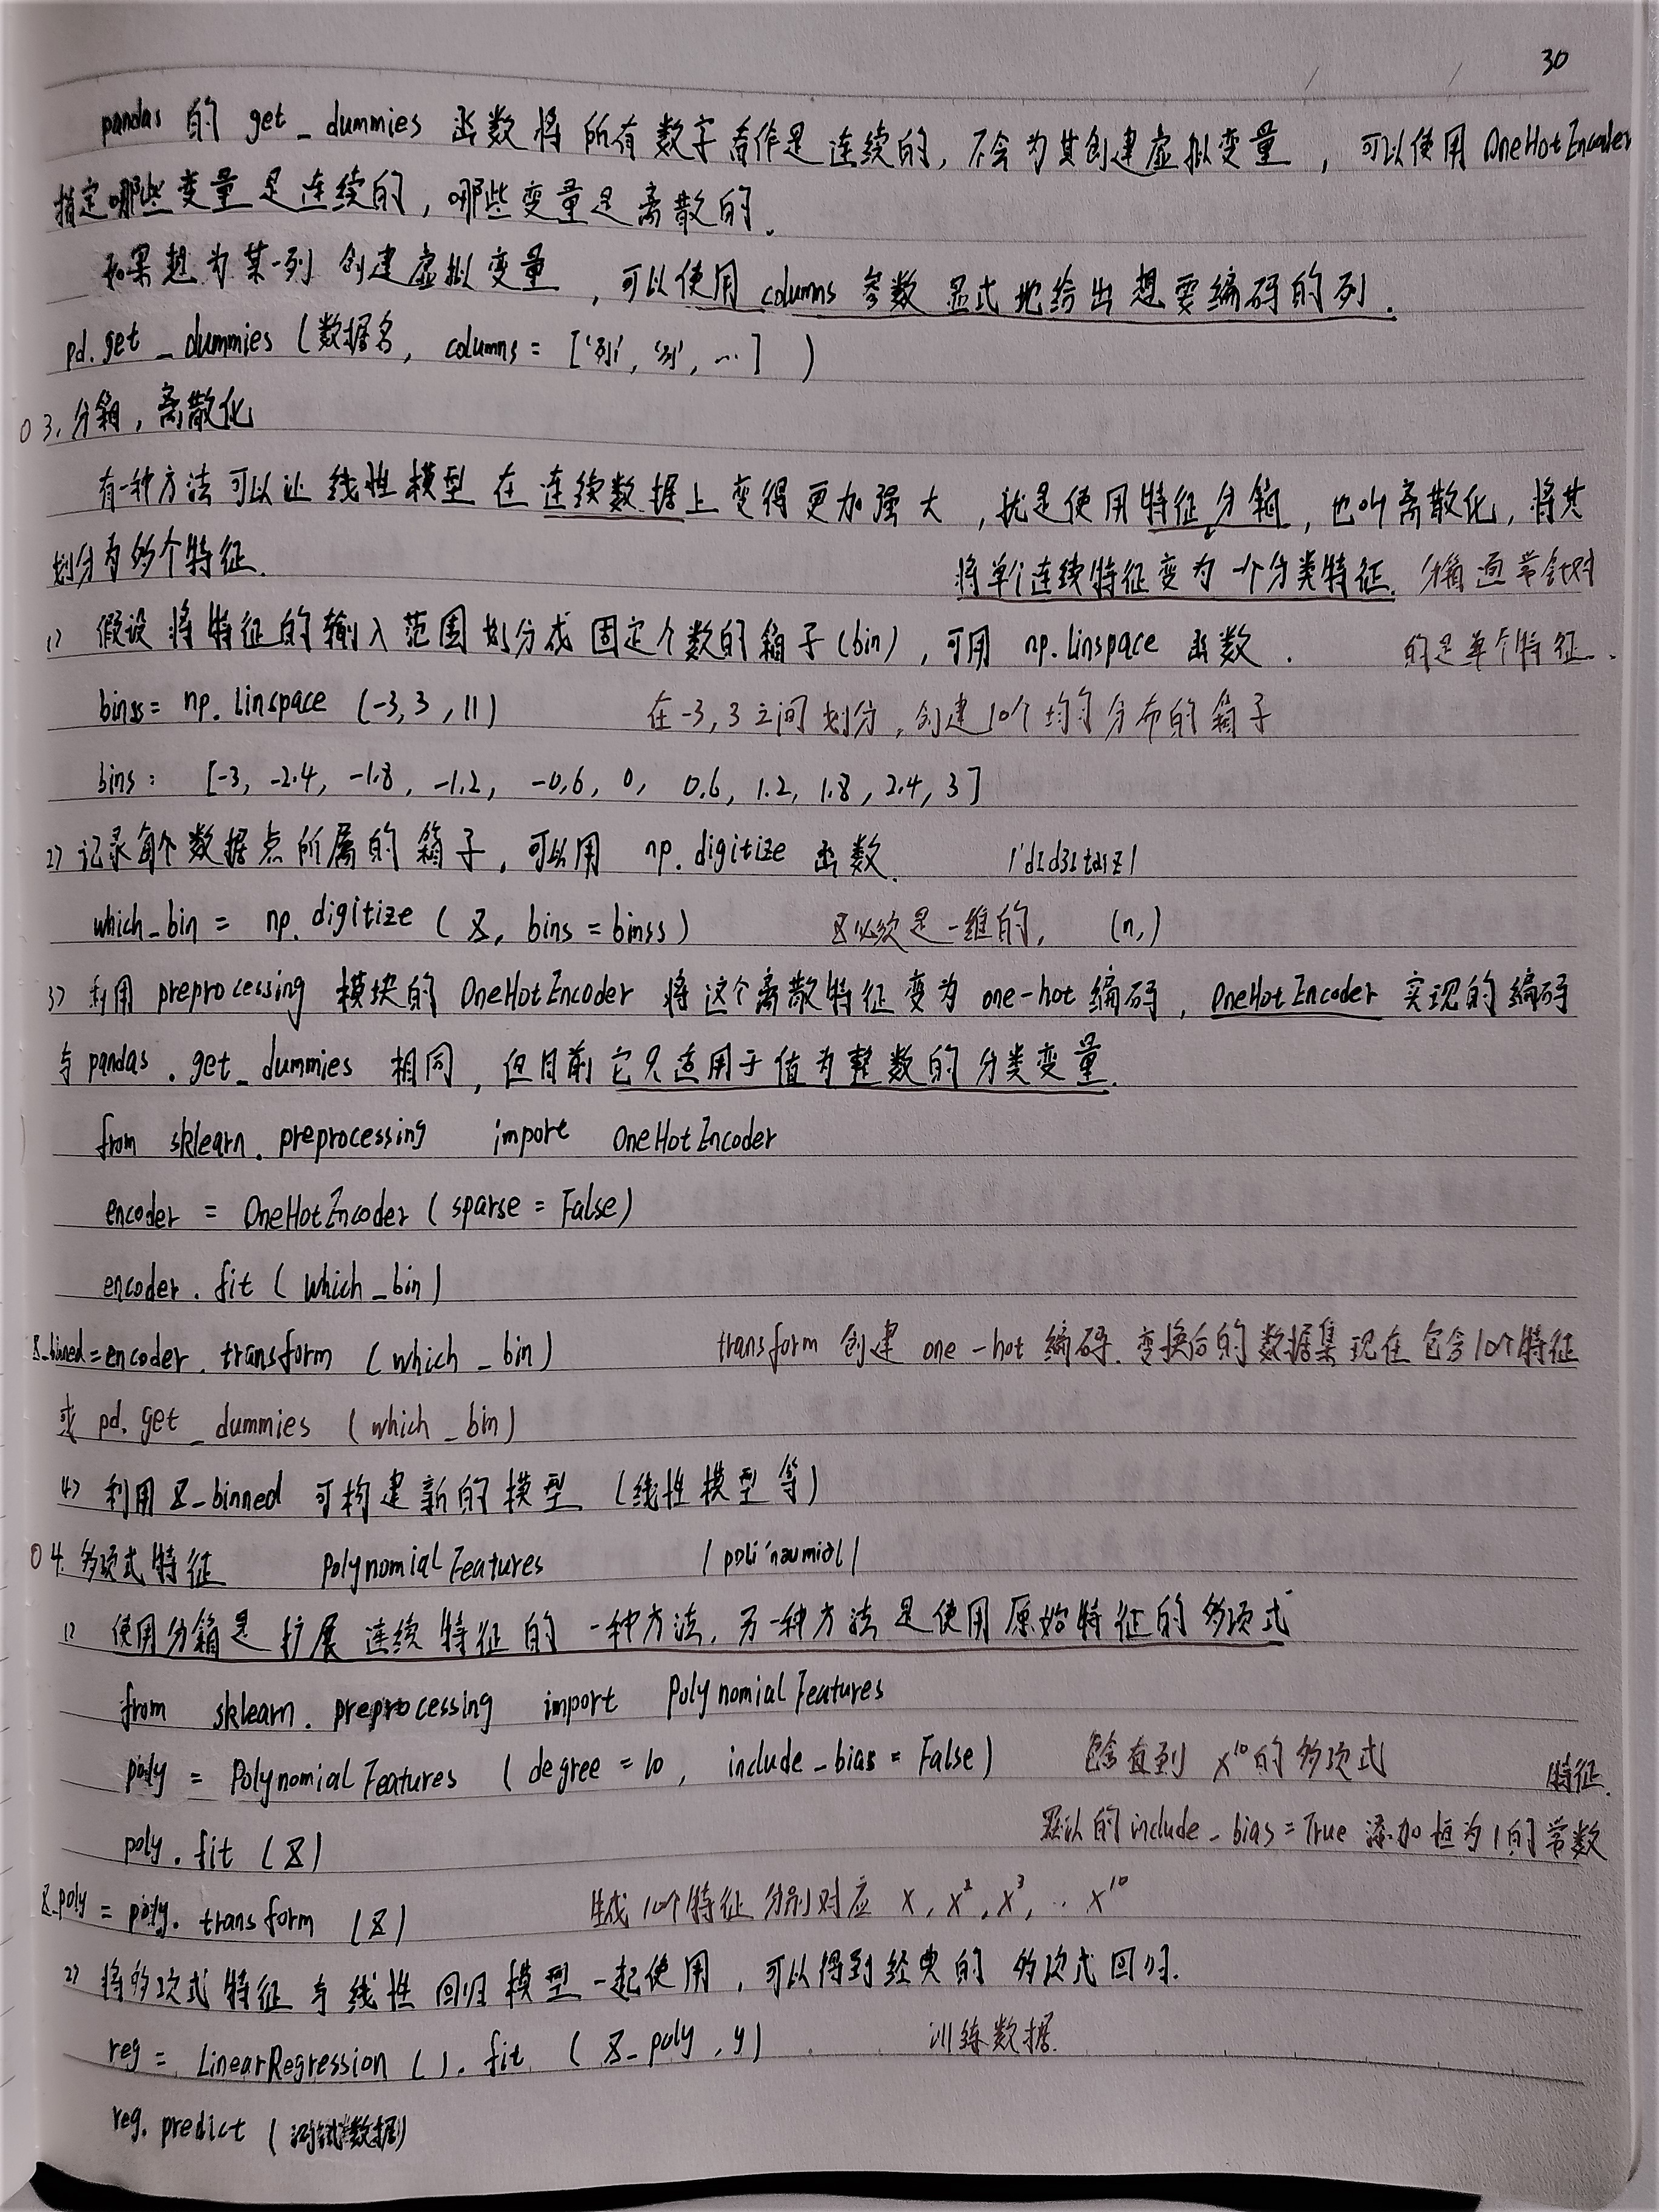 30
pandas 的 get_dummies 函数将所有数字看作是连续的，不会为其创建虚拟变量，可以使用 OneHotEncoder
指定哪些变量是连续的，哪些变量是离散的．
如果想为某一列创建虚拟变量，可以使用 columns 参数显式地给出想要编码的列．
pd.get_dummies (数据名, columns = ['列', '列', …] )
03. 分箱，离散化
有一种方法可以让线性模型在连续数据上变得更加强大，就是使用特征分箱，也叫离散化，将其
划分为多个特征． 将单个连续特征变为一个分类特征． 分箱通常针对
1) 假设将特征的输入范围划分成固定个数的箱子(bin)，可用 np.linspace 函数． 的是单个特征．
binss = np.linspace (-3, 3, 11) 在-3,3之间划分，创建10个均匀分布的箱子
bins : [-3, -2.4, -1.8, -1.2, -0.6, 0, 0.6, 1.2, 1.8, 2.4, 3]
2) 记录每个数据点所属的箱子，可以用 np.digitize 函数． /ˈdɪdʒɪtaɪz/
which_bin = np.digitize (X, bins = binss) X必须是一维的， (n,)
3) 利用 preprocessing 模块的 OneHotEncoder 将这个离散特征变为 one-hot 编码，OneHotEncoder 实现的编码
与 pandas.get_dummies 相同，但目前它只适用于值为整数的分类变量．
from sklearn.preprocessing import OneHotEncoder
encoder = OneHotEncoder (sparse = False)
encoder.fit (which_bin)
X_binned = encoder.transform (which_bin) transform 创建 one-hot 编码．变换后的数据集现在包含10个特征
或 pd.get_dummies (which_bin)
4) 利用 X_binned 可构建新的模型 (线性模型等)
04. 多项式特征 PolynomialFeatures /ˌpɒliˈnəʊmiəl/
1) 使用分箱是扩展连续特征的一种方法，另一种方法是使用原始特征的多项式
from sklearn.preprocessing import PolynomialFeatures
poly = PolynomialFeatures (degree = 10, include_bias = False) 包含直到 x¹⁰ 的多项式 特征．
poly.fit (X) 默认的 include_bias = True 添加恒为1的常数
X_poly = poly.transform (X) 生成10个特征分别对应 x, x², x³, … x¹⁰
2) 将多项式特征与线性回归模型一起使用，可以得到经典的多项式回归．
reg = LinearRegression ().fit (X_poly, y) 训练数据．
reg.predict (测试数据)